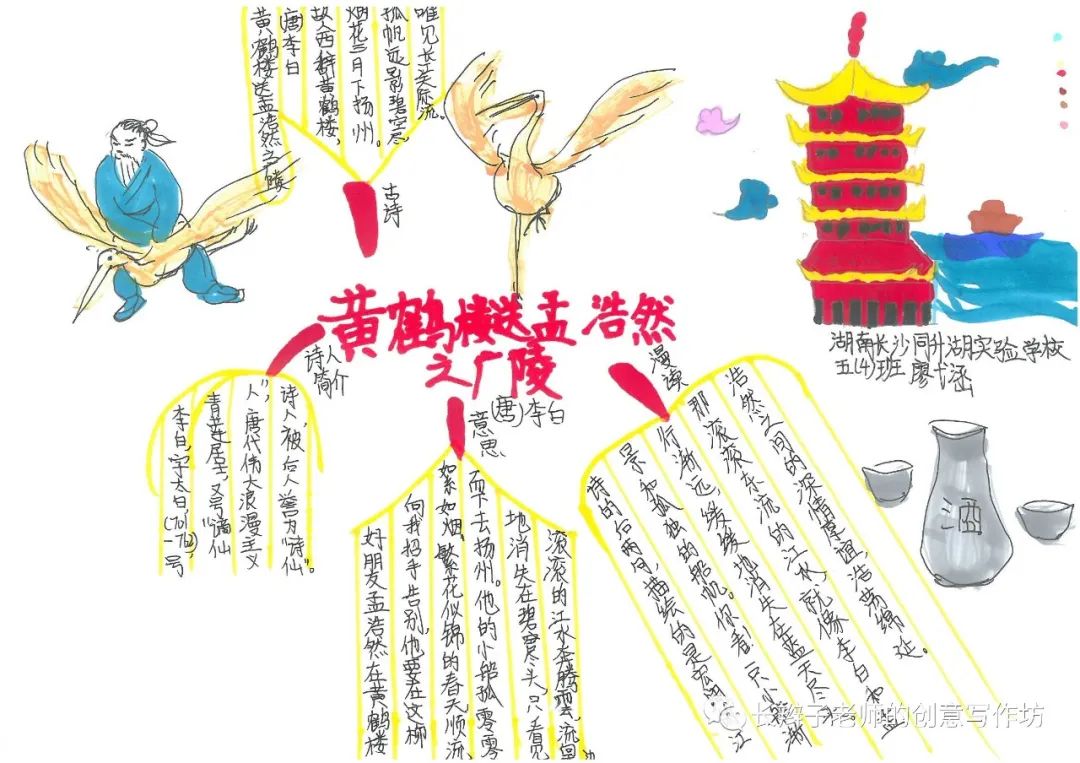 古诗
黄鹤楼送孟浩然之广陵
(唐)李白
故人西辞黄鹤楼，
烟花三月下扬州。
孤帆远影碧空尽，
唯见长江天际流。
黄鹤楼送孟浩然
之广陵
(唐)李白
湖南长沙同升湖实验学校
五(4)班 廖弋涵
诗人
简介
李白，字太白，(701-762)，号
青莲居士，又号“谪仙
人”，唐代伟大浪漫主义
诗人，被后人誉为“诗仙”。
意思
好朋友孟浩然在黄鹤楼
向我招手告别，他要在这柳
如絮如烟、繁花似锦的春天顺流
而下去扬州。他的小船孤零零
地消失在碧空尽头，只看见
滚滚的江水奔腾
漫读
诗的后两句，描绘的是宏
景和孤独的船帆。你看！一只小船渐
行渐远，缓缓地消失在蓝天尽
那滚滚东流的江水，就像李白和孟
浩然之间的深情厚谊，浩荡绵延。
酒
长辫子老师的创意写作坊